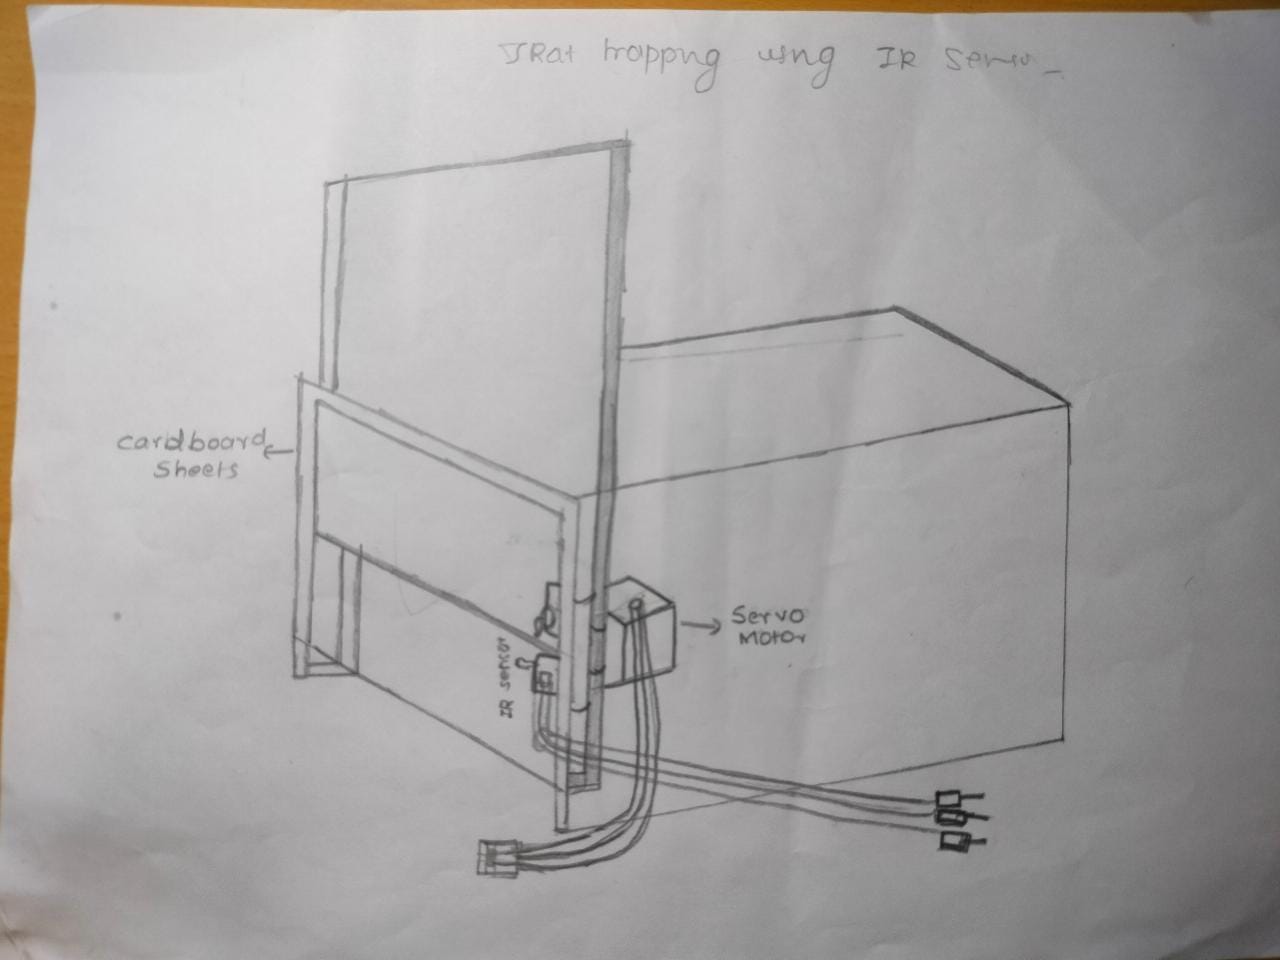 Rat trapping using IR Servo
cardboard
Sheets
Servo
Motor
IR sensor